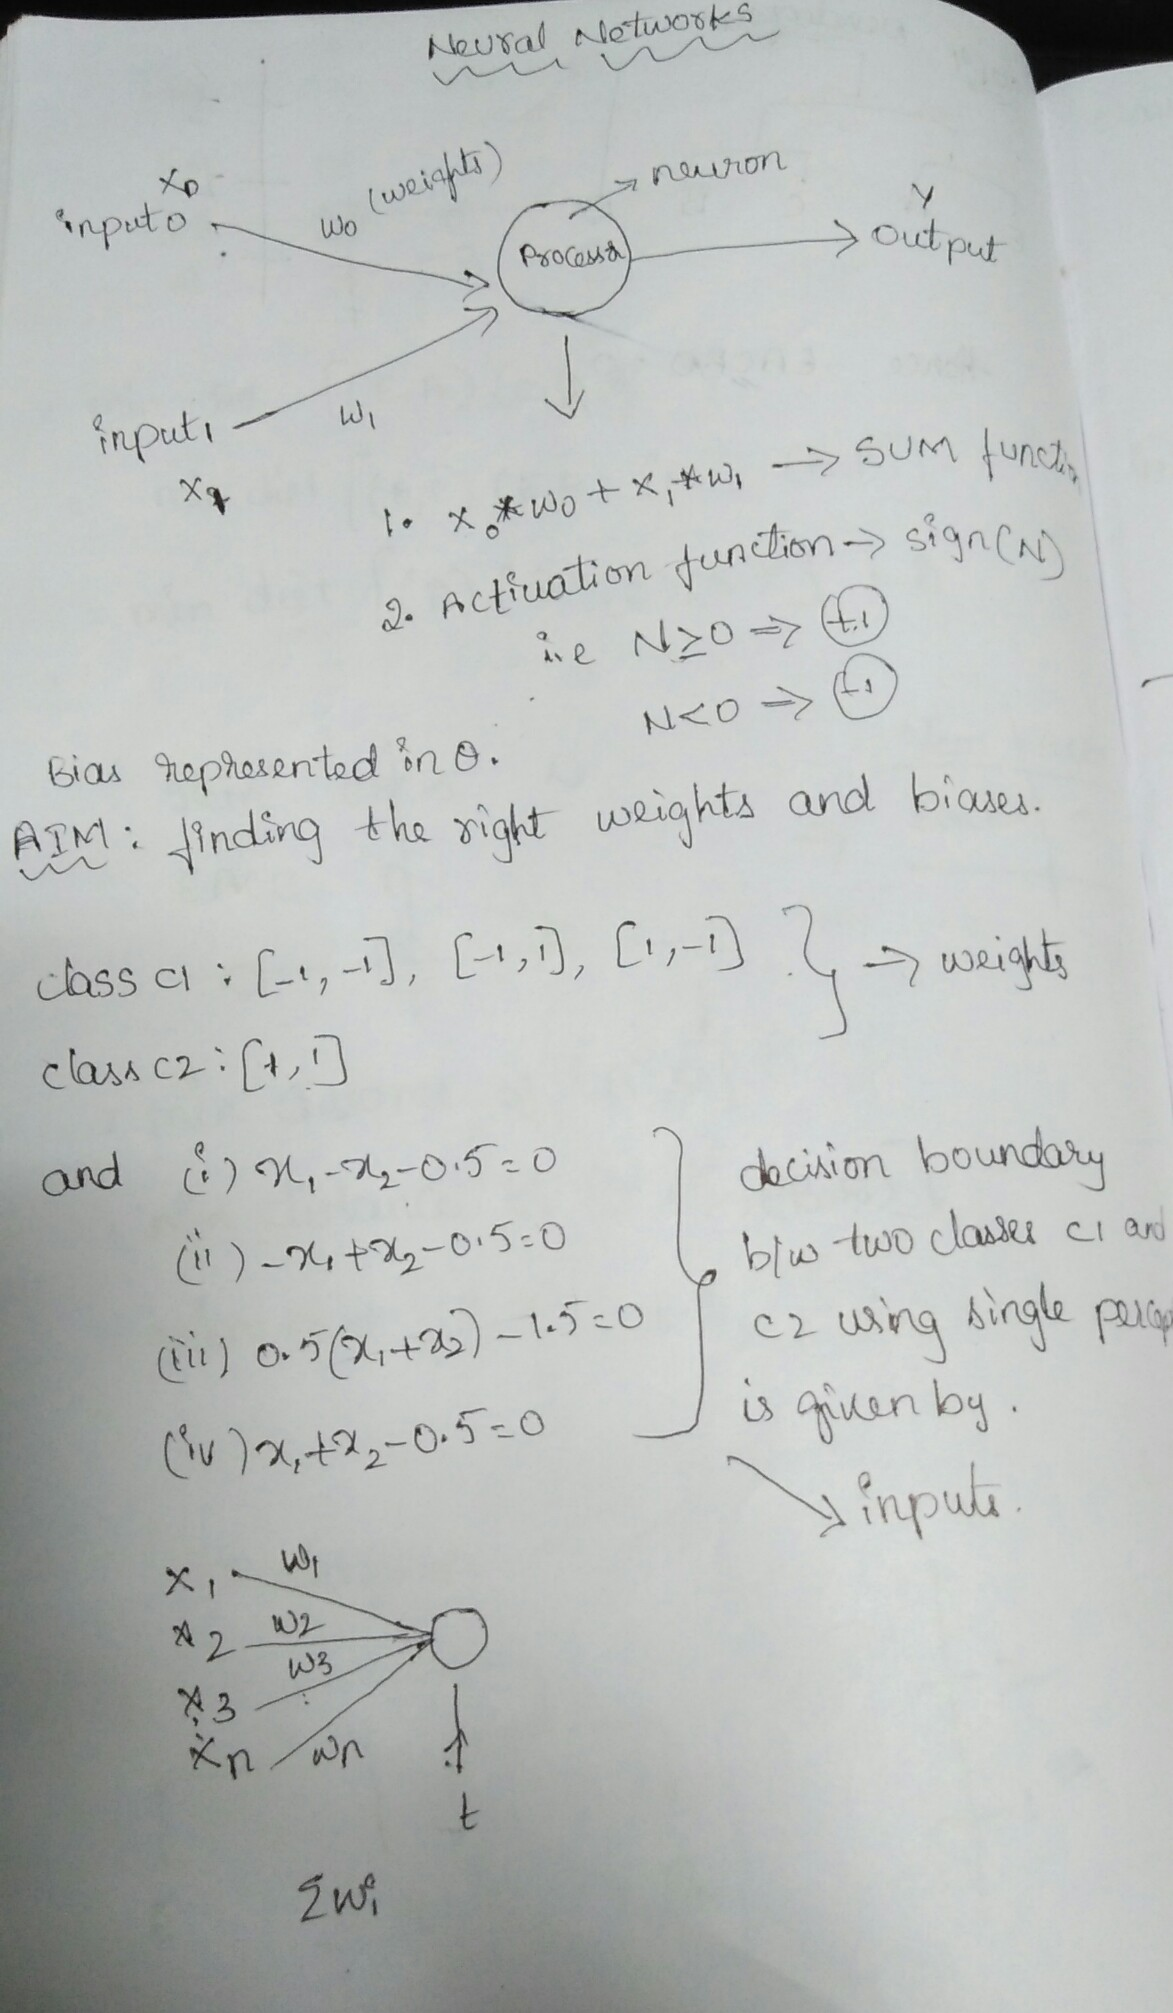 Neural Networks
x0
input0
w0 (weights)
Processor
neuron
Y
output
input1
w1
x1
1. x0*w0 + x1*w1 → SUM function
2. Activation function → sign(N)
i.e N≥0 ⇒ +1
N<0 ⇒ -1
Bias represented in θ.
AIM: finding the right weights and biases.
class c1 : [-1, -1], [-1, 1], [1, -1] } → weights
class c2 : [1, 1]
and (i) x1 - x2 - 0.5 = 0
(ii) -x1 + x2 - 0.5 = 0
(iii) 0.5(x1 + x2) - 1.5 = 0
(iv) x1 + x2 - 0.5 = 0
decision boundary
b/w two classes c1 and
c2 using single
is given by.
inputs.
x1 w1
x2 w2
x3 w3
xn wn
t
Σwi